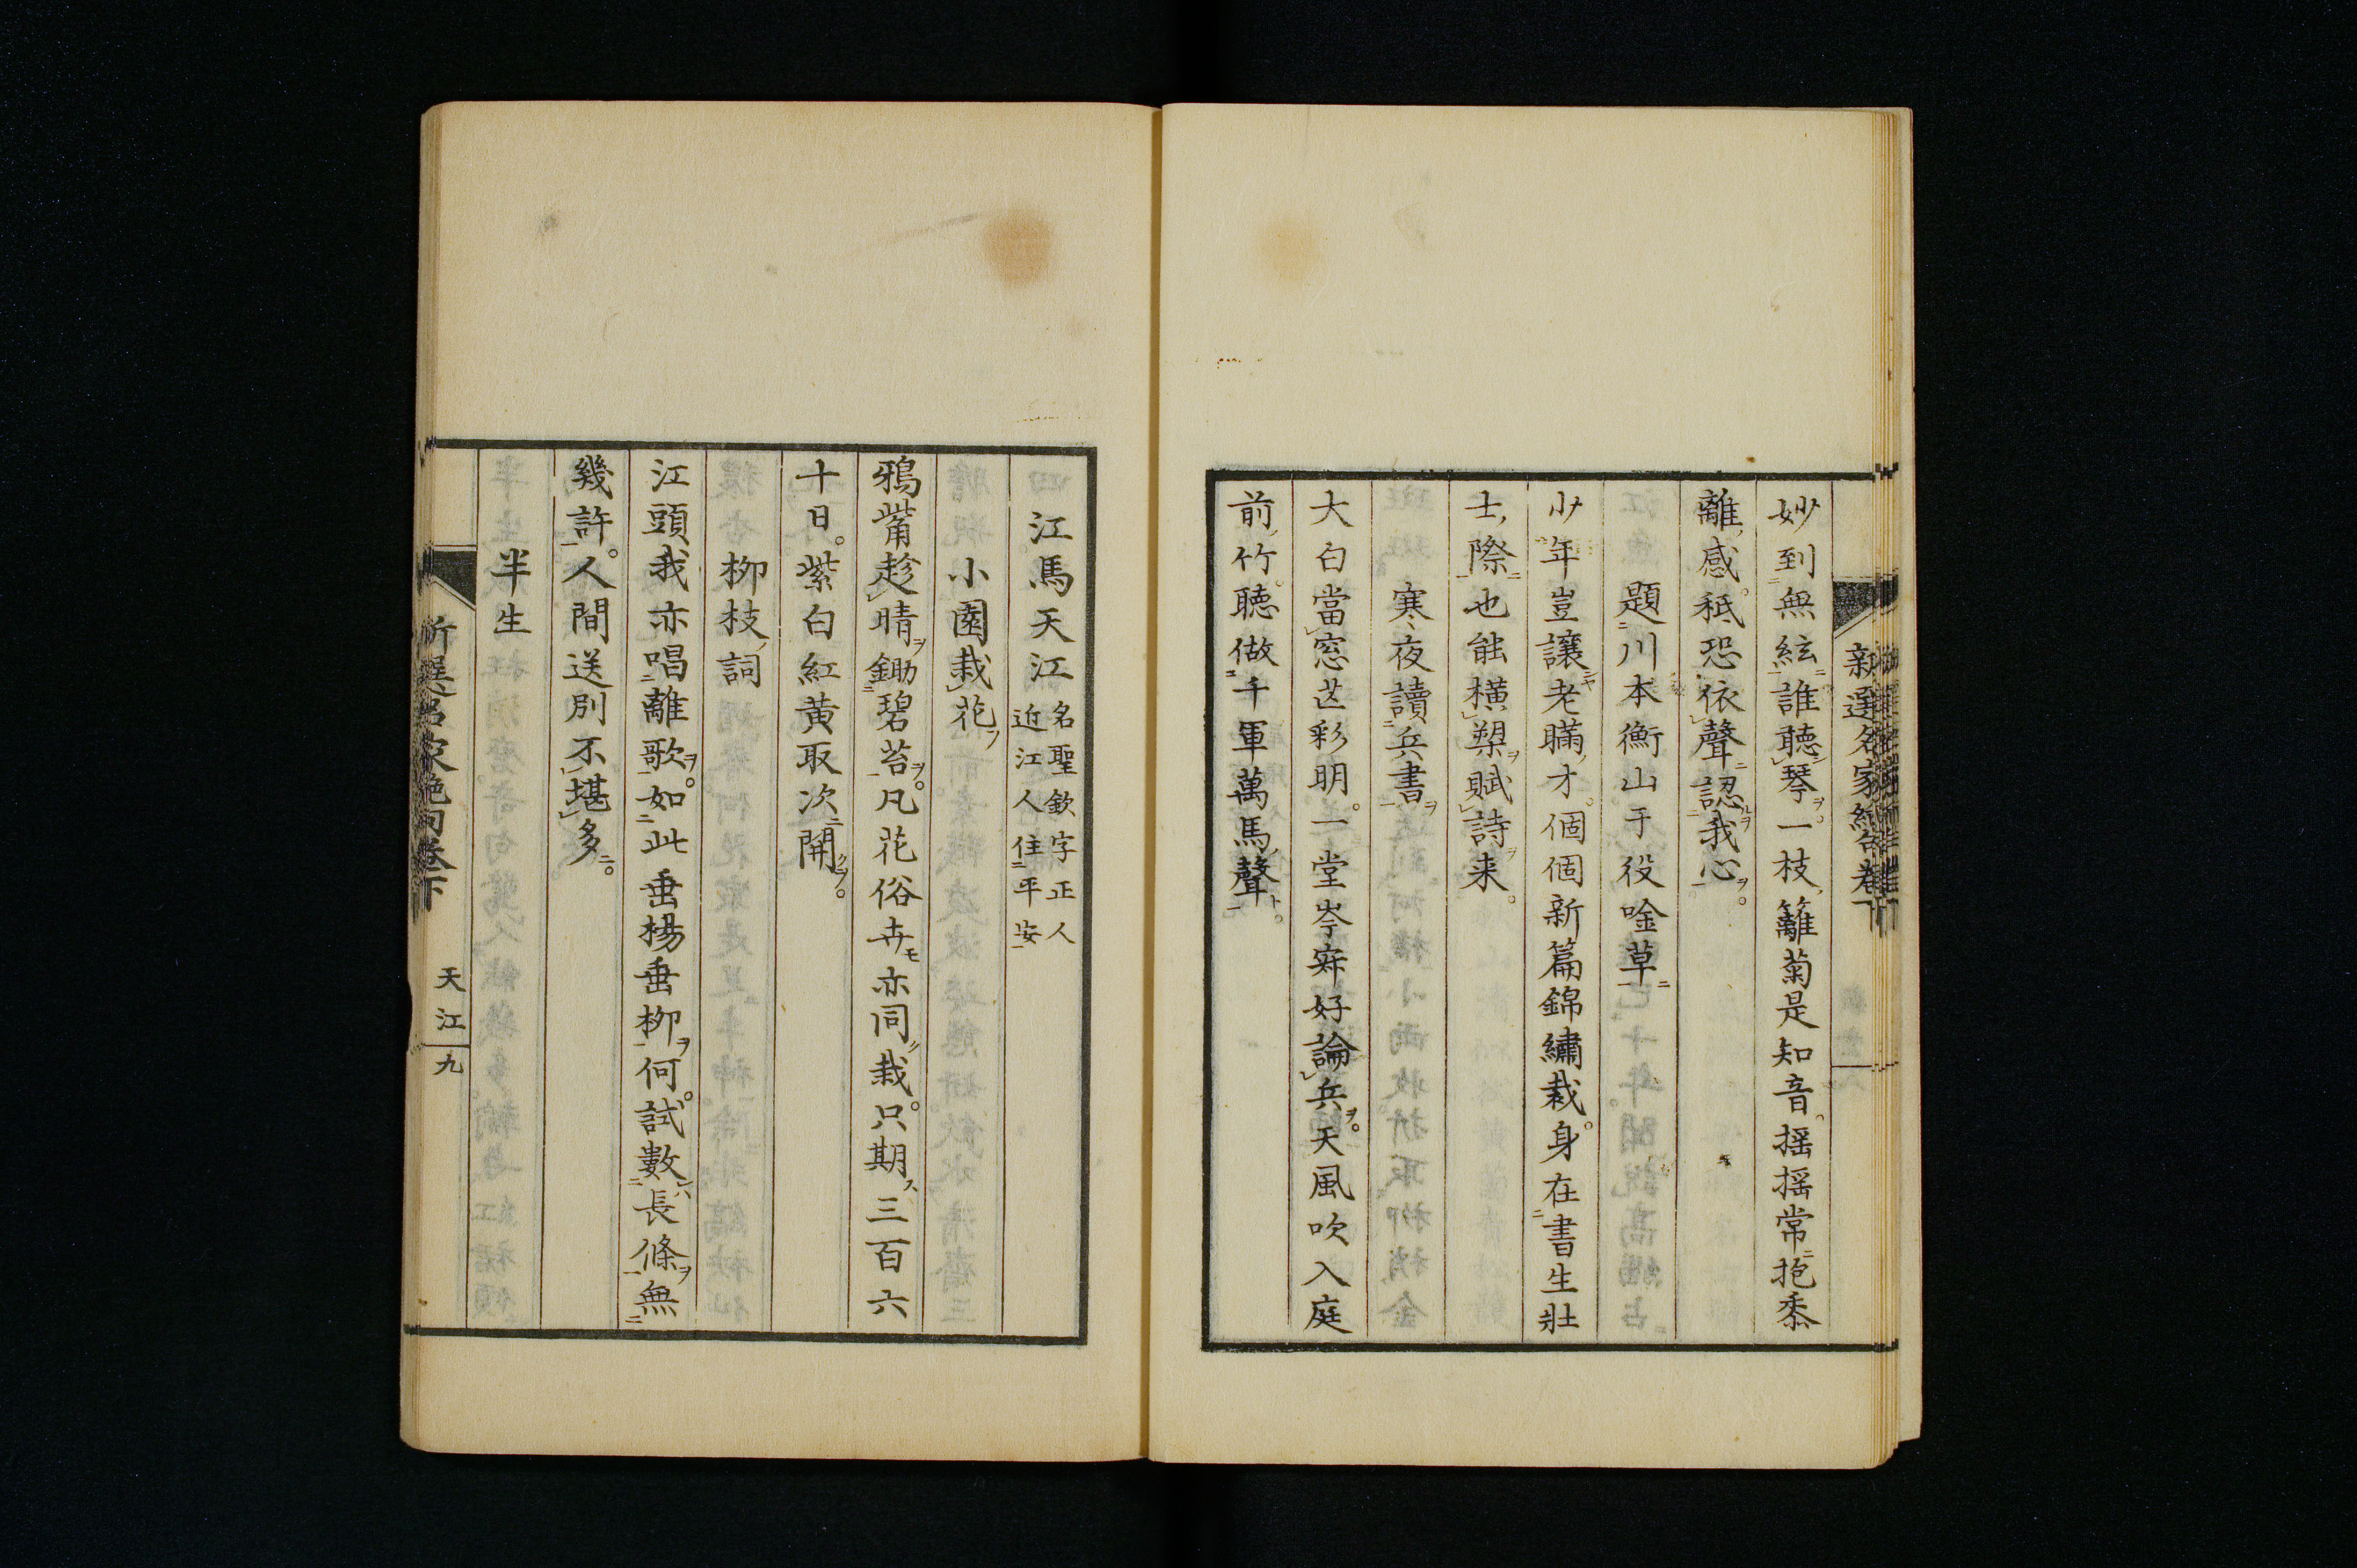 新選名家絶句巻下
妙到無絃誰聴琴一枝籬菊是知音揺揺常抱黍
離感秪恐依聲認我心
題川本衡山于役唫草
少年豈讓老瞞才個個新篇錦繡裁身在書生壯
士際也能横槊賦詩来
寒夜讀兵書
大白當窓芒彩明一堂岑寂好論兵天風吹入庭
前竹聴做千軍萬馬聲
江馬天江 名聖欽字正人近江人住平安
小園栽花
鴉觜趁晴鋤碧苔凡花俗卉亦同栽只期三百六
十日紫白紅黄取次開
柳枝詞
江頭我亦唱離歌如此垂楊垂柳何試數長條無
幾許人間送別不堪多
半生
新選名家絶句巻下 天江 九